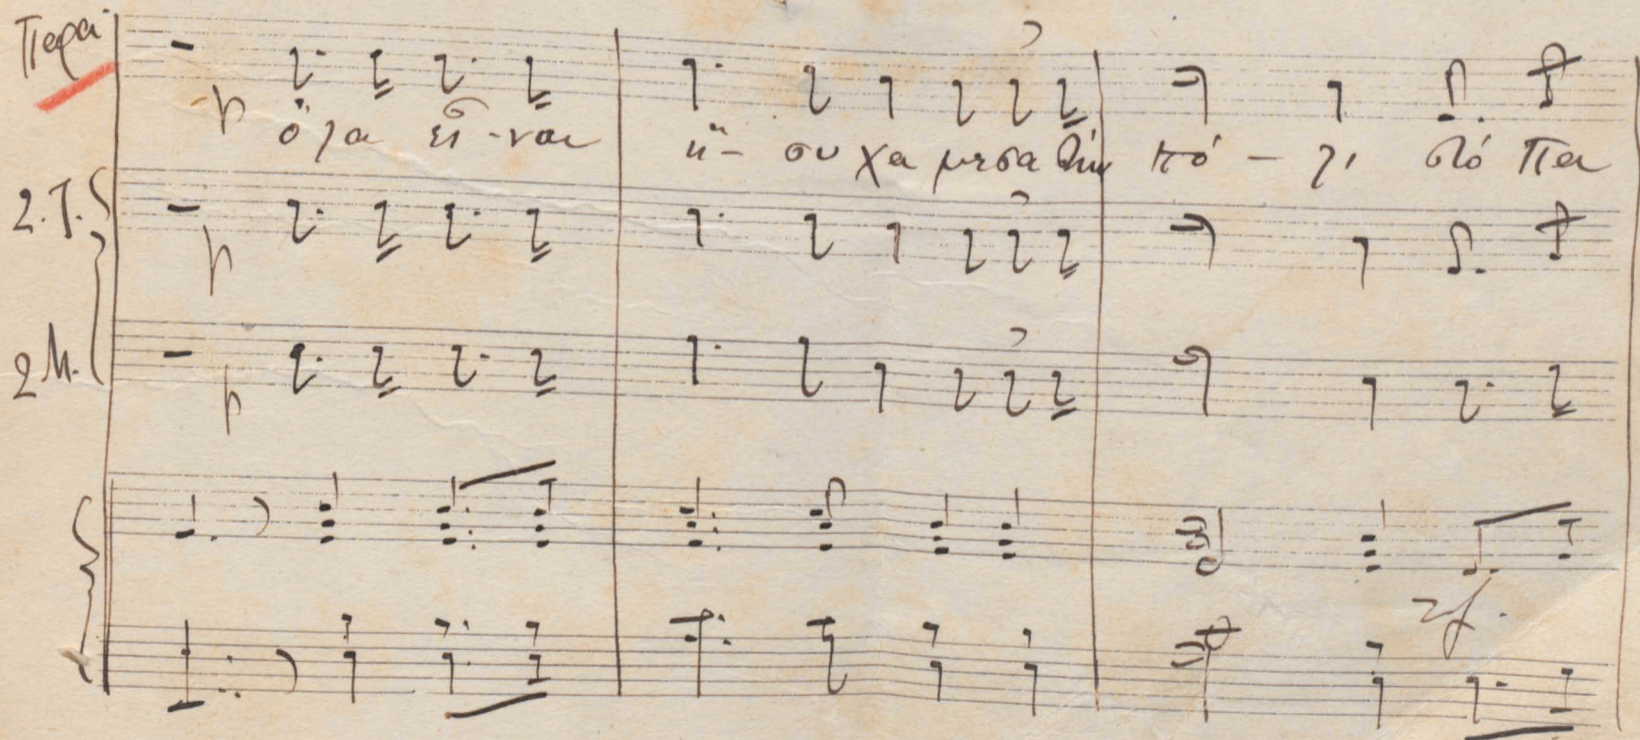 Περαί
p ὅλα εἶ-ναι ἥ-συχα μεσα στὴν πό-λι στὸ Πα
2.Τ.
p
2Μ.
p
sf.